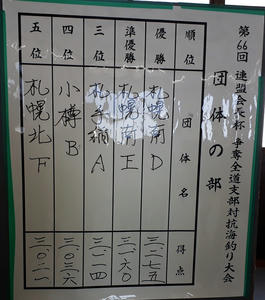 第66回 連盟会長杯争奪全道支部対抗海釣り大会
団体の部
順位 団体名 得点
優勝 札幌南D 三、一七五
準優勝 札幌南王 三、一六〇
三位 札手稲A 三、一一四
四位 小樽B 三、〇三六
五位 札幌北下 三、〇二一